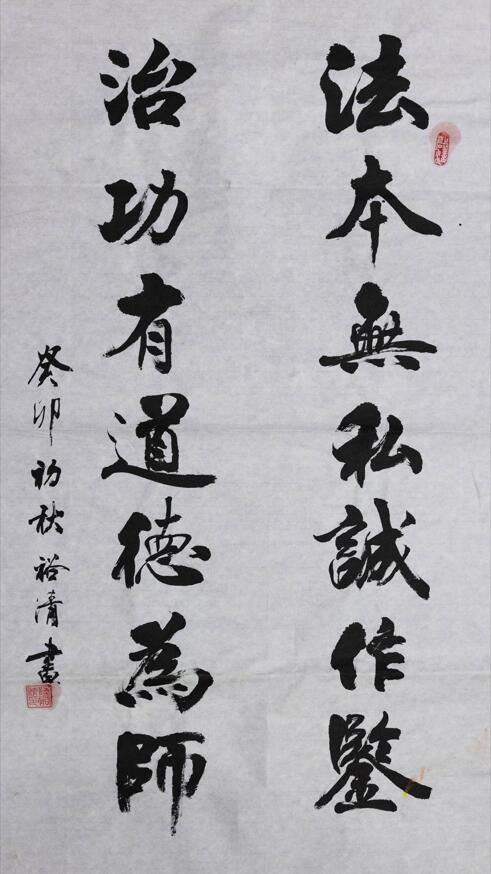 法本無私誠作鑒
治功有道德為師
癸卯初秋裕清書